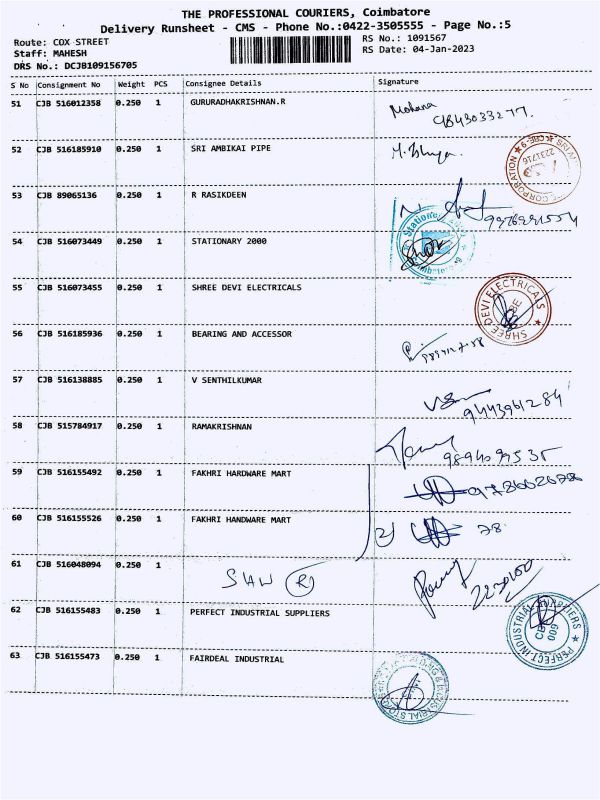 THE PROFESSIONAL COURIERS, Coimbatore
Delivery Runsheet - CMS - Phone No.:0422-3505555 - Page No.:5
Route: COX STREET RS No.: 1091567
Staff: MAHESH RS Date: 04-Jan-2023
DRS No.: DCJB109156705
S No Consignment No Weight PCS Consignee Details Signature
51 CJB 516012358 0.250 1 GURURADHAKRISHNAN.R Mohana
9843033277.
52 CJB 516185910 0.250 1 SRI AMBIKAI PIPE
CORPORATION CBE-9 2231716
53 CJB 89065136 0.250 1 R RASIKDEEN
54 CJB 516073449 0.250 1 STATIONARY 2000
55 CJB 516073455 0.250 1 SHREE DEVI ELECTRICALS SHREE DEVI ELECTRICALS
56 CJB 516185936 0.250 1 BEARING AND ACCESSOR
57 CJB 516138885 0.250 1 V SENTHILKUMAR
9443961284
58 CJB 515784917 0.250 1 RAMAKRISHNAN
9894099535
59 CJB 516155492 0.250 1 FAKHRI HARDWARE MART
60 CJB 516155526 0.250 1 FAKHRI HANDWARE MART 2) 78
61 CJB 516048094 0.250 1
62 CJB 516155483 0.250 1 PERFECT INDUSTRIAL SUPPLIERS PERFECT INDUSTRIAL SUPPLIERS
63 CJB 516155473 0.250 1 FAIRDEAL INDUSTRIAL